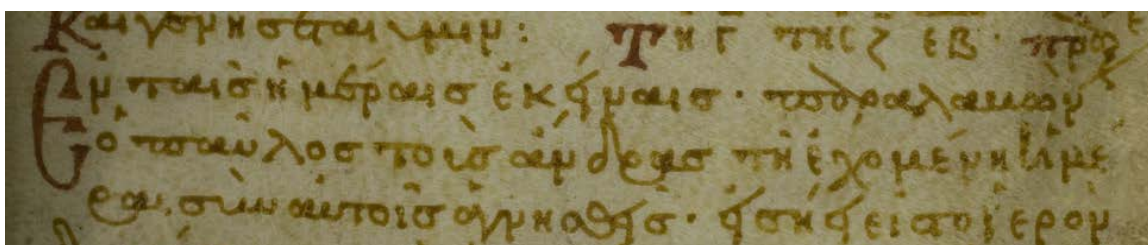 Και γενησεται υμιν : Τη Γ της ζ εβ · πραξ
Εν ταις ἡμέραις ἐκείναις · παραλαβων
ὁ παῦλος τοὺς ἄνδρας τῆ ἐχομένη ἡμέ
ρα, σὺν αὐτοῖς ἁγνησθείς · εἰσήει εις το ἱερον